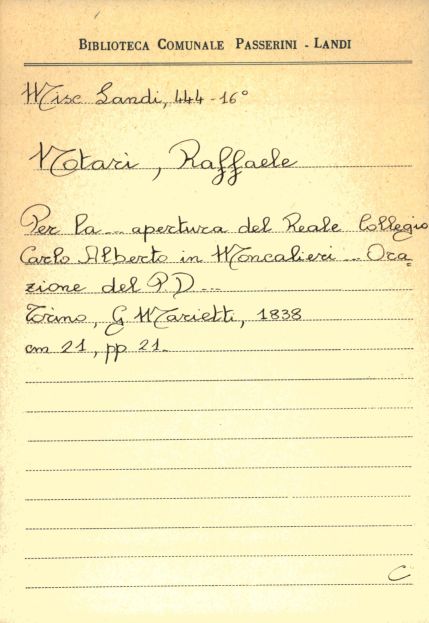 BIBLIOTECA COMUNALE PASSERINI - LANDI
Misc Landi, 444 - 16°
Notari, Raffaele
Per la ... apertura del Reale Collegio
Carlo Alberto in Moncalieri ... Ora=
zione del P. D...
Torino, G Marietti, 1838
cm 21, pp 21.
C